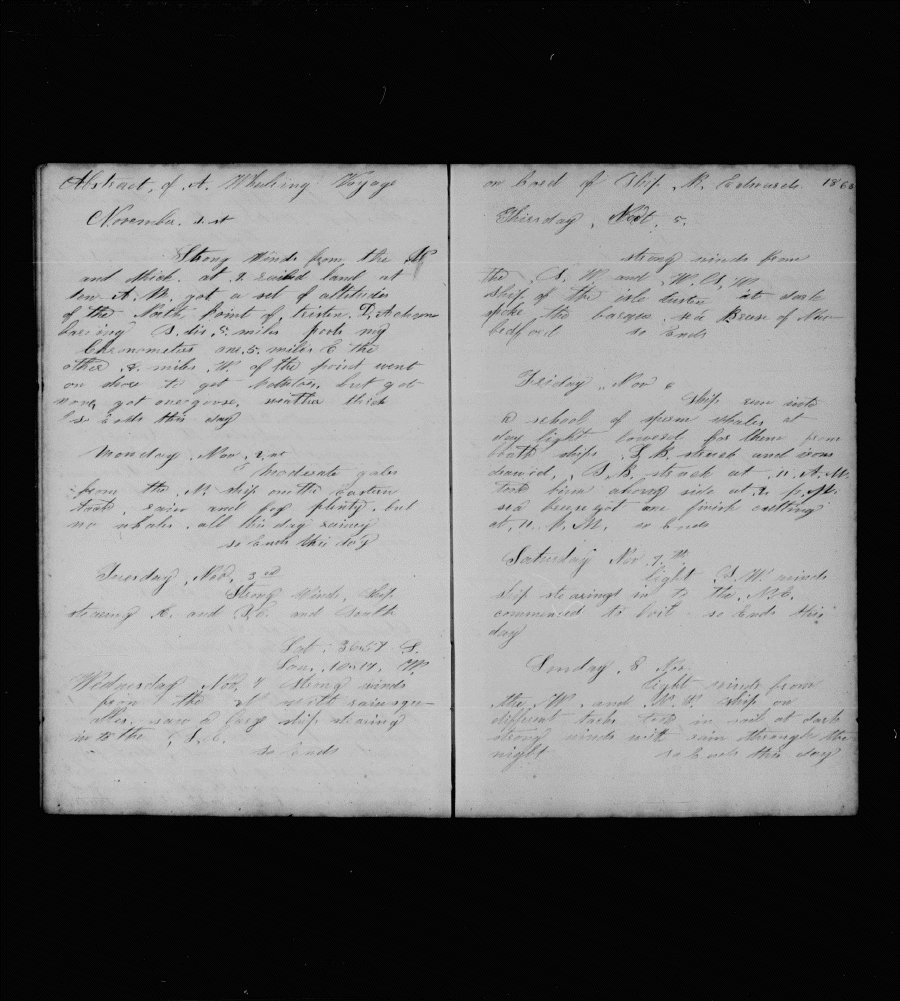 Abstract, of A. Whaling Voyage
November. 1. st
Strong Winds from the N
and thick. at 7. raised land at
ten. A. M. got a set of altitudes
of the North point of, Tristen. D. Achone
bearing S. dis, 5. miles prov my
Chronometers one. 5. miles E the
other .8. miles. W. of the point went
on shore to get potatoes, but got
none, got one goose, weather thick
so Ends this day
Monday. Nov. 2. st
Moderate gales
from the .N. ship on the eastern
tack, rain and fog plenty. but
no whales. all this day rainey
so Ends this day
Tuesday, Nov, 3 rd
Strong Winds, Ship
stearing E. and S.E. and South
Lat. 36.27 S.
Lon. 10.17. W.
Wednesday Nov, 4 strong winds
from the N with rain squ-
alls. saw a large ship stearing
in to the S. E.
so Ends
on bord of Ship. B. Edwards. 186
Thirsday, Nov, 5.
strong winds from
the, S. W and W. S, W
ship. of the isle at dark
spoke the barque. sea Breuse of New-
bedford so Ends
Friday, Nov 6
Ship run into
a school of sperm whales at
day light lowered for them from
both ships. L. B. struck and iron
drawed, S. B. struck at 11. A. M.
took him along side at 2. P. M.
sea breuse got one finish cutting
at, 11. P. M. so Ends
Saturday Nov 7. th
light S. W. winds
ship stearings in to the N.E.
commenced to boil so Ends this
day
Sunday. 8 Nov
light winds from
the W. and N. W. ship on
different tacks took in sail at dark
strong winds with rain through the
night so Ends this day